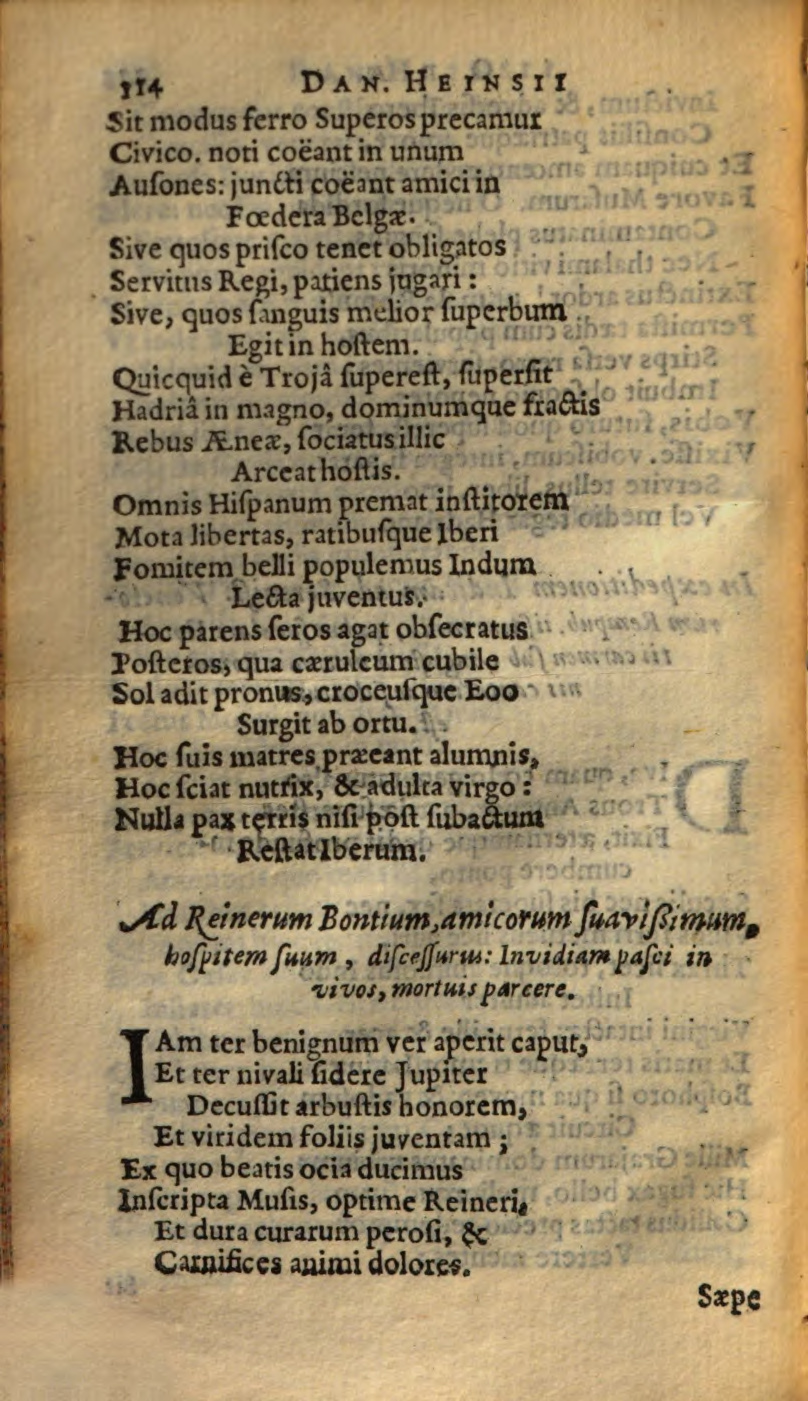 314 DAN. HEINSII
Sit modus ferro Superos precamur
Civico. noti coëant in unum
Auſones: juncti coëant amici in
Fœdera Belgæ.
Sive quos priſco tenet obligatos
Servitus Regi, patiens jugari:
Sive, quos ſanguis melior ſuperbum
Egit in hoſtem.
Quicquid è Trojâ ſupereſt, ſuperſit
Hadriâ in magno, dominumque fractis
Rebus Æneæ, ſociatus illic
Arceat hoſtis.
Omnis Hiſpanum premat inſtitorem
Mota libertas, ratibuſque Iberi
Fomitem belli populemus Indum
Lecta juventus.
Hoc parens ſeros agat obſecratus
Poſteros, qua cæruleum cubile
Sol adit pronus, croceuſque Eoo
Surgit ab ortu.
Hoc ſuis matres præeant alumnis,
Hoc ſciat nutrix, & adulta virgo:
Nulla pax terris niſi poſt ſubactum
Reſtat Iberum.
Ad Reinerum Bontium, amicorum ſuaviſsimum,
hoſpitem ſuum, diſceſſurus: Invidiam paſci in
vivos, mortuis parcere.
IAm ter benignum ver aperit caput,
Et ter nivali ſidere Jupiter
Decuſſit arbuſtis honorem,
Et viridem foliis juventam;
Ex quo beatis ocia ducimus
Inſcripta Muſis, optime Reineri,
Et dura curarum peroſi, &
Carnifices animi dolores.
Sæpe